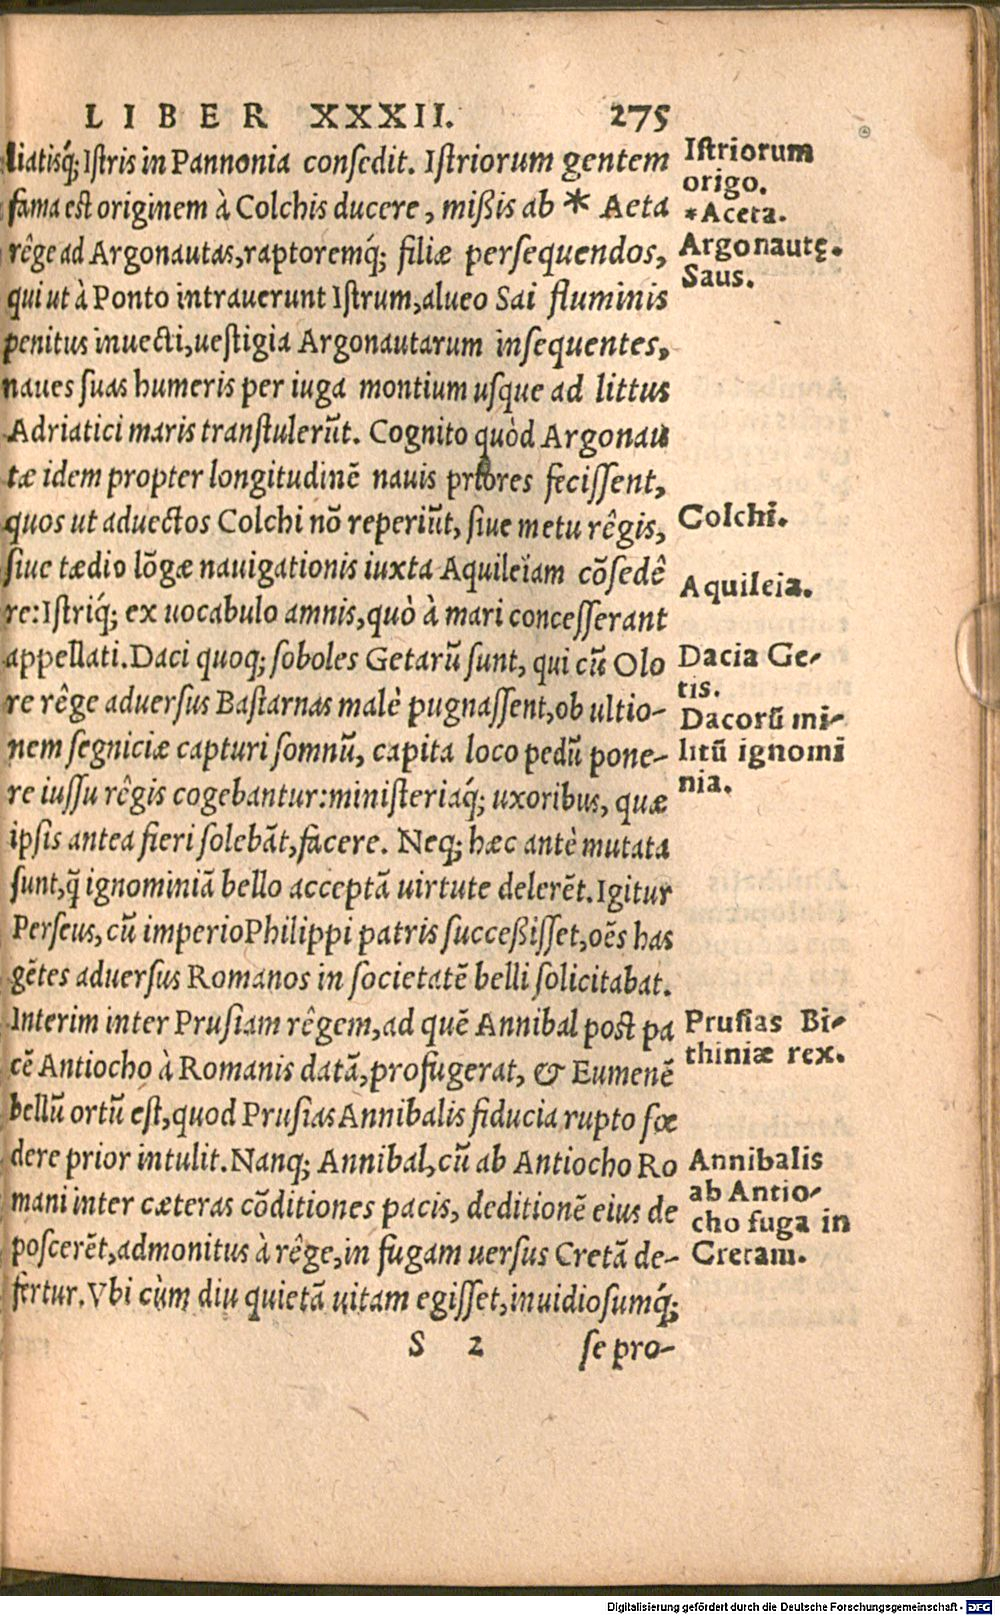 LIBER XXXII. 275
liatisq́; Iſtris in Pannonia conſedit. Iſtriorum gentem
fama est originem à Colchis ducere, mißis ab * Aeta
rêge ad Argonautas, raptoremq́; filiæ perſequendos,
qui ut à Ponto intrauerunt Iſtrum, alueo Sai fluminis
penitus inuecti, ueſtigia Argonautarum inſequentes,
naues ſuas humeris per iuga montium uſque ad littus
Adriatici maris tranſtulerūt. Cognito quòd Argonau
tæ idem propter longitudinē nauis priores feciſſent,
quos ut aduectos Colchi nō reperiūt, ſiue metu rêgis,
ſiue tædio lōgæ nauigationis iuxta Aquileiam cōſedê
re: Iſtriq́; ex uocabulo amnis, quò à mari conceſſerant
appellati. Daci quoq; ſoboles Getarū ſunt, qui cū Olo
re rêge aduerſus Baſtarnas malè pugnaſſent, ob ultio-
nem ſegniciæ capturi ſomnū, capita loco pedū pone-
re iuſſu rêgis cogebantur: miniſteriaq́; uxoribus, quæ
ipſis antea fieri ſolebāt, facere. Neq; hæc antè mutata
ſunt, q̄ ignominiā bello acceptā uirtute delerēt. Igitur
Perſeus, cū imperio Philippi patris ſucceßiſſet, oēs has
gētes aduerſus Romanos in ſocietatē belli ſolicitabat.
Interim inter Pruſiam rêgem, ad quē Annibal poſt pa
cē Antiocho à Romanis datā, profugerat, & Eumenē
bellū ortū eſt, quod Pruſias Annibalis fiducia rupto fœ
dere prior intulit. Nanq; Annibal, cū ab Antiocho Ro
mani inter cæteras cōditiones pacis, deditionē eius de
poſcerēt, admonitus à rêge, in fugam uerſus Cretā de-
fertur. Vbi cùm diu quietā uitam egiſſet, inuidioſumq́;
S 2 ſe pro-
Iſtriorum
origo.
*Aceta.
Argonautę.
Saus.
Colchi.
Aquileia.
Dacia Ge-
tis.
Dacorū mi-
litū ignomi
nia.
Pruſias Bi-
thiniæ rex.
Annibalis
ab Antio-
cho fuga in
Cretam.
Digitalisierung gefördert durch die Deutsche Forschungsgemeinschaft - DFG